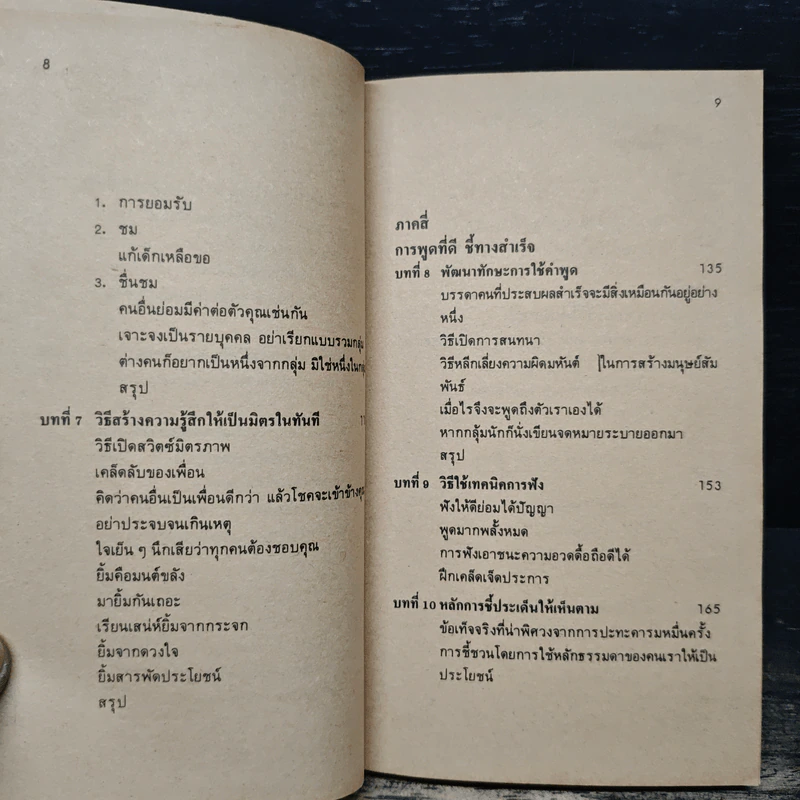 8
1. การยอมรับ
2. ชม
แก้เด็กเหลือขอ
3. ชื่นชม
คนอื่นย่อมมีค่าต่อตัวคุณเช่นกัน
เจาะจงเป็นรายบุคคล อย่าเรียกแบบรวมกลุ่ม
ต่างคนก็อยากเป็นหนึ่งจากกลุ่ม มิใช่หนึ่งใน
สรุป
บทที่ 7 วิธีสร้างความรู้สึกให้เป็นมิตรในทันที
วิธีเปิดสวิตซ์มิตรภาพ
เคล็ดลับของเพื่อน
คิดว่าคนอื่นเป็นเพื่อนดีกว่า แล้วโชคจะเข้าข้าง
อย่าประจบจนเกินเหตุ
ใจเย็น ๆ นึกเสียว่าทุกคนต้องชอบคุณ
ยิ้มคือมนต์ขลัง
มายิ้มกันเถอะ
เรียนเสน่ห์ยิ้มจากกระจก
ยิ้มจากดวงใจ
ยิ้มสารพัดประโยชน์
สรุป
9
ภาคสี่
การพูดที่ดี ชี้ทางสำเร็จ
บทที่ 8 พัฒนาทักษะการใช้คำพูด 135
บรรดาคนที่ประสบผลสำเร็จจะมีสิ่งเหมือนกันอยู่อย่าง
หนึ่ง
วิธีเปิดการสนทนา
วิธีหลีกเลี่ยงความผิดมหันต์ ในการสร้างมนุษย์สัม
พันธ์
เมื่อไรจึงจะพูดถึงตัวเราเองได้
หากกลุ้มนักก็นั่งเขียนจดหมายระบายออกมา
สรุป
บทที่ 9 วิธีใช้เทคนิคการฟัง 153
ฟังให้ดีย่อมได้ปัญญา
พูดมากพลั้งหมด
การฟังเอาชนะความอวดดื้อถือดีได้
ฝึกเคล็ดเจ็ดประการ
บทที่ 10 หลักการชี้ประเด็นให้เห็นตาม 165
ข้อเท็จจริงที่น่าพิศวงจากการปะทะคารมหมื่นครั้ง
การชี้ชวนโดยการใช้หลักธรรมดาของคนเราให้เป็น
ประโยชน์